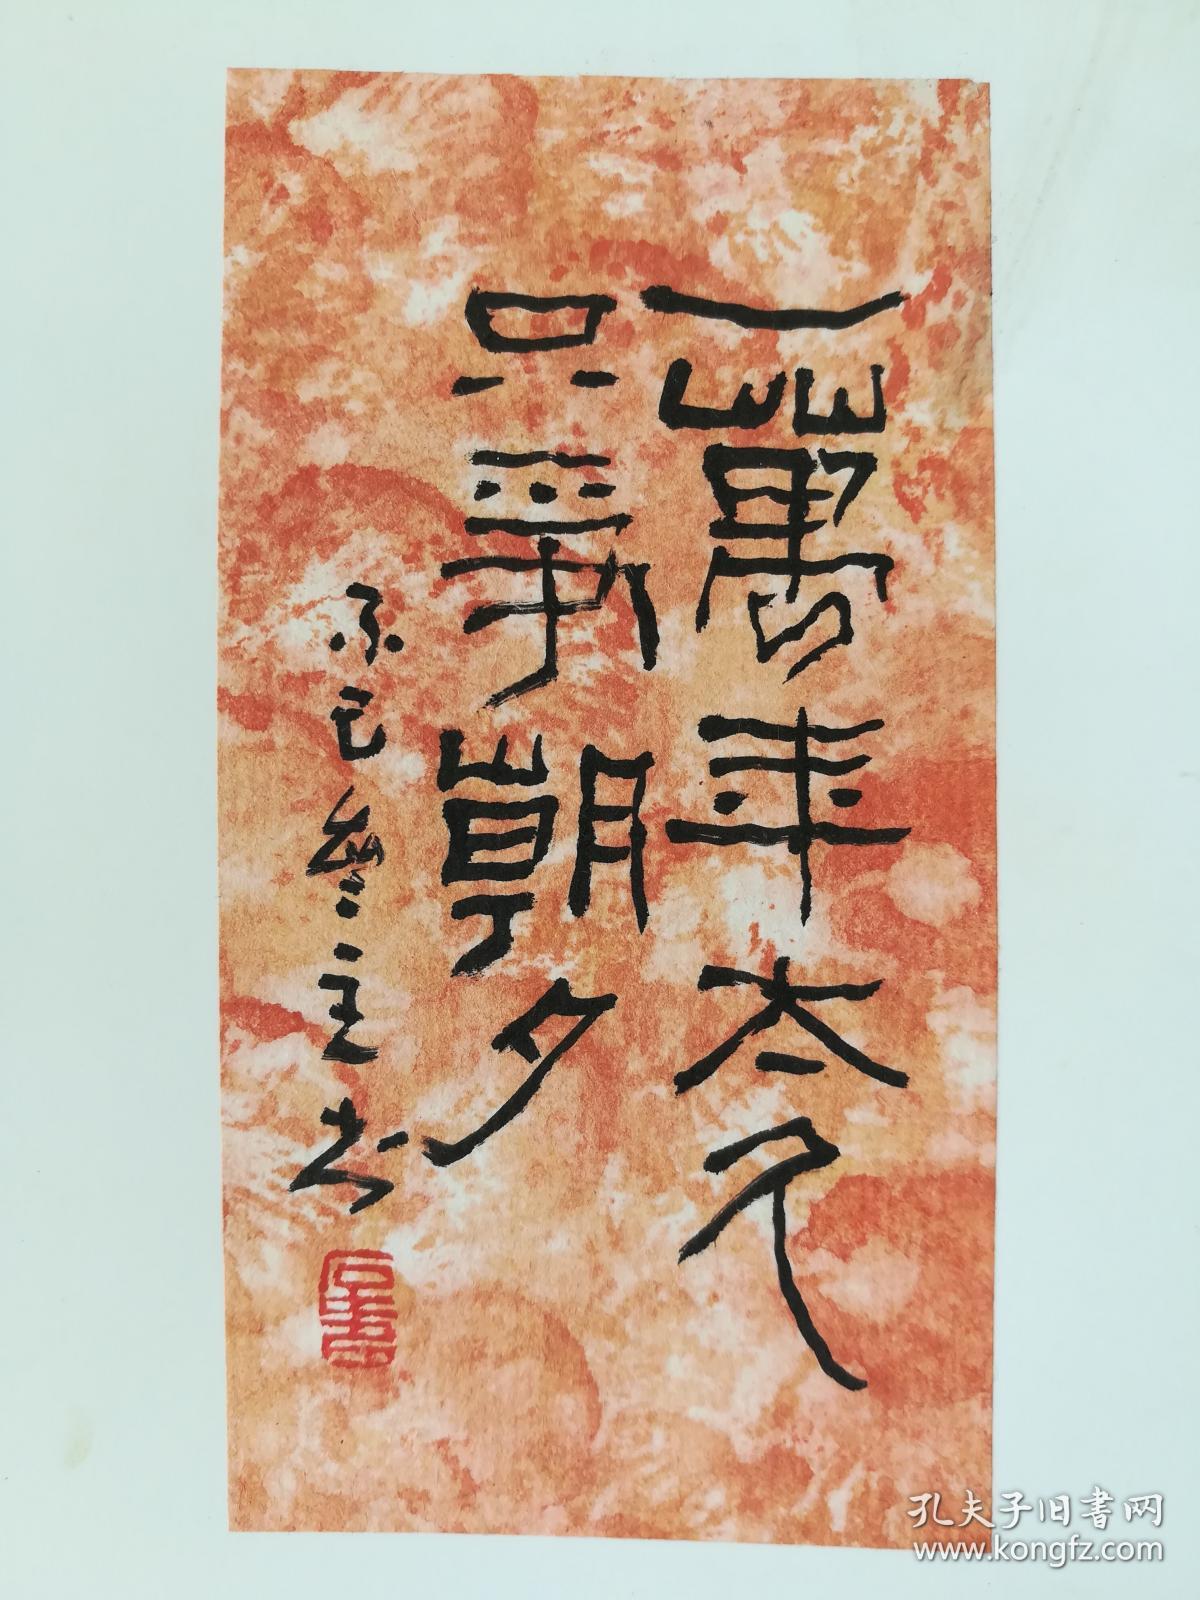 一萬年太久
只爭朝夕
不已齋主書
孔夫子旧书网
www.kongfz.com